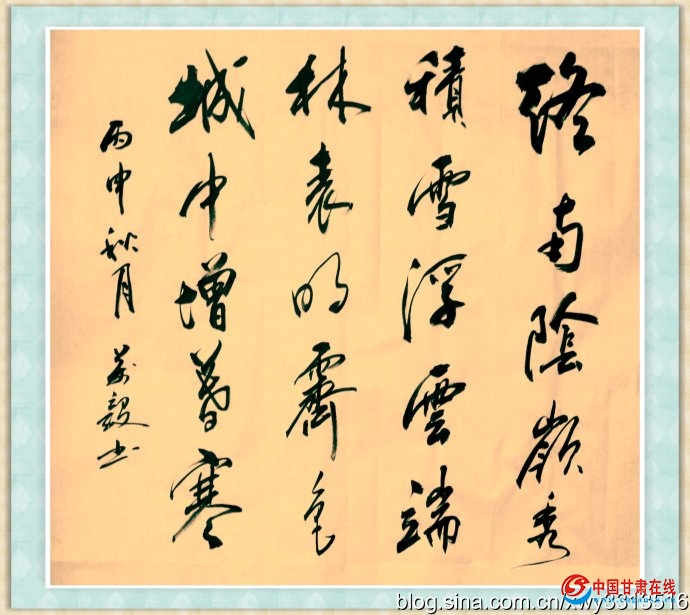 終南陰嶺秀
積雪浮雲端
林表明霽色
城中增暮寒
丙申秋月 毅书
中国甘肃在线
blog.sina.com.cn/